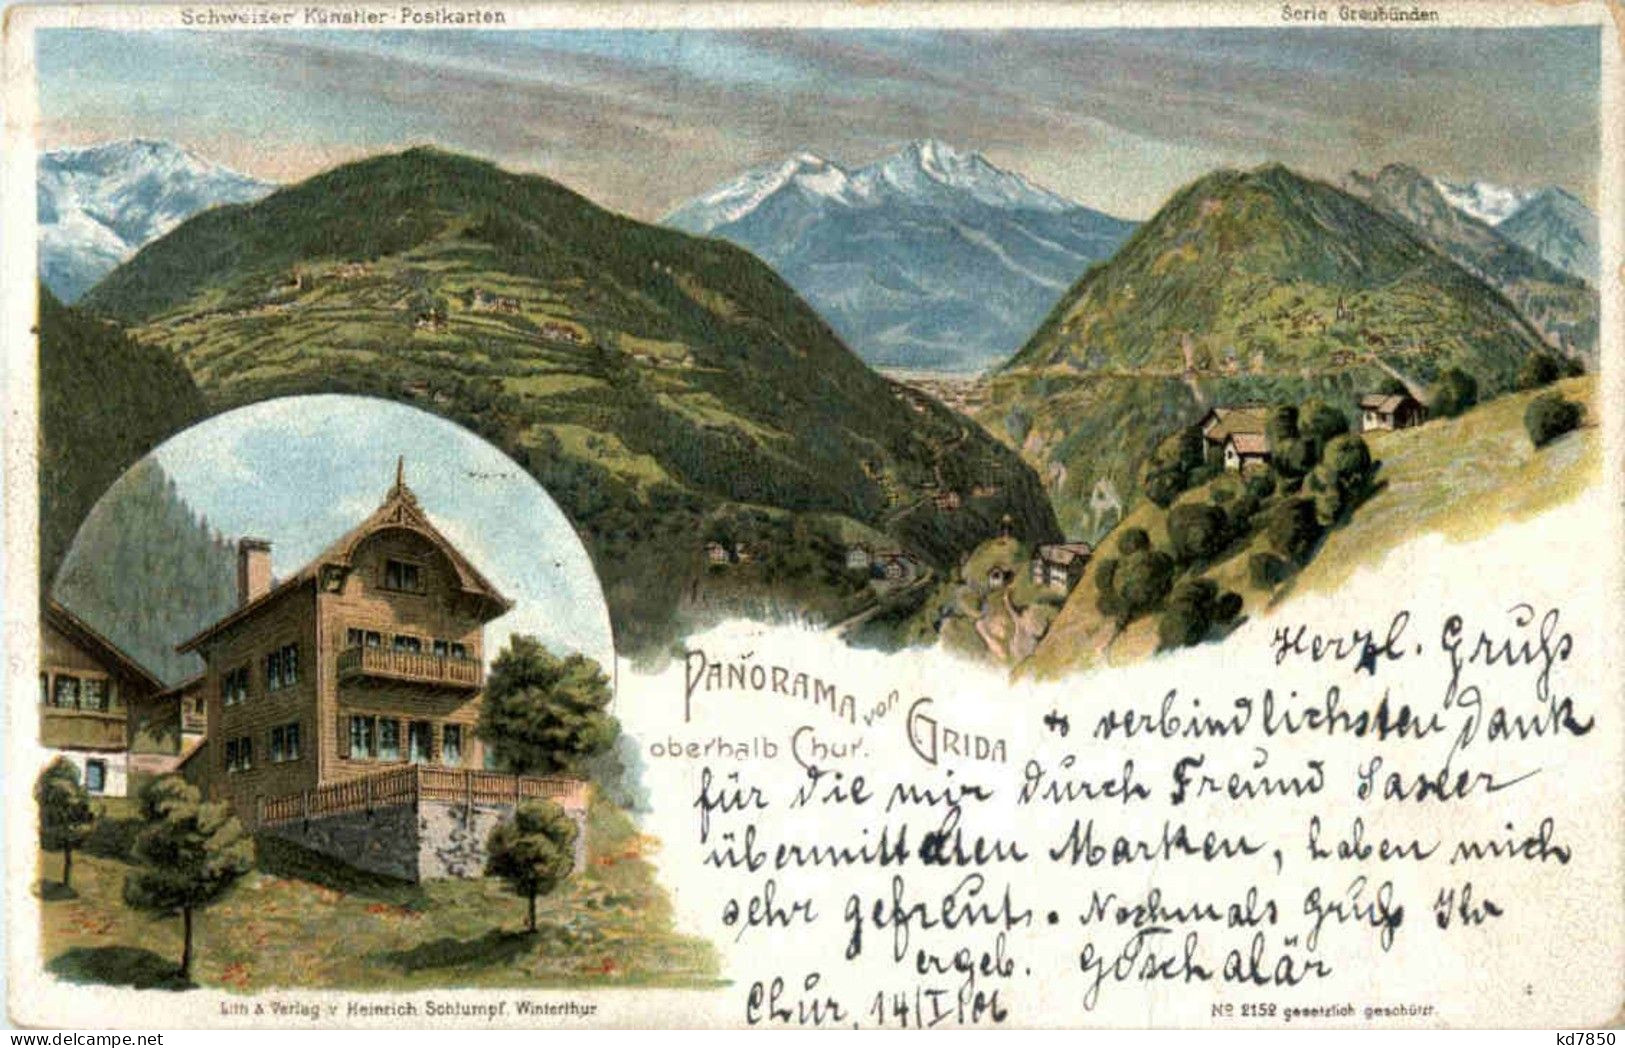 Schweizer Künstler-Postkarten
Serie Graubünden
PANORAMA von GRIDA
oberhalb Chur.
Herzl. Gruss
& verbindlichsten Dank
für die mir durch Freund
übermittelten Marken, haben mich
sehr gefreut. Nochmals Gruss Ihr
ergeb.
Chur, 14/I/06
Lith & Verlag v Heinrich Schlumpf, Winterthur
No 2152 gesetzlich geschützt.
kd7850